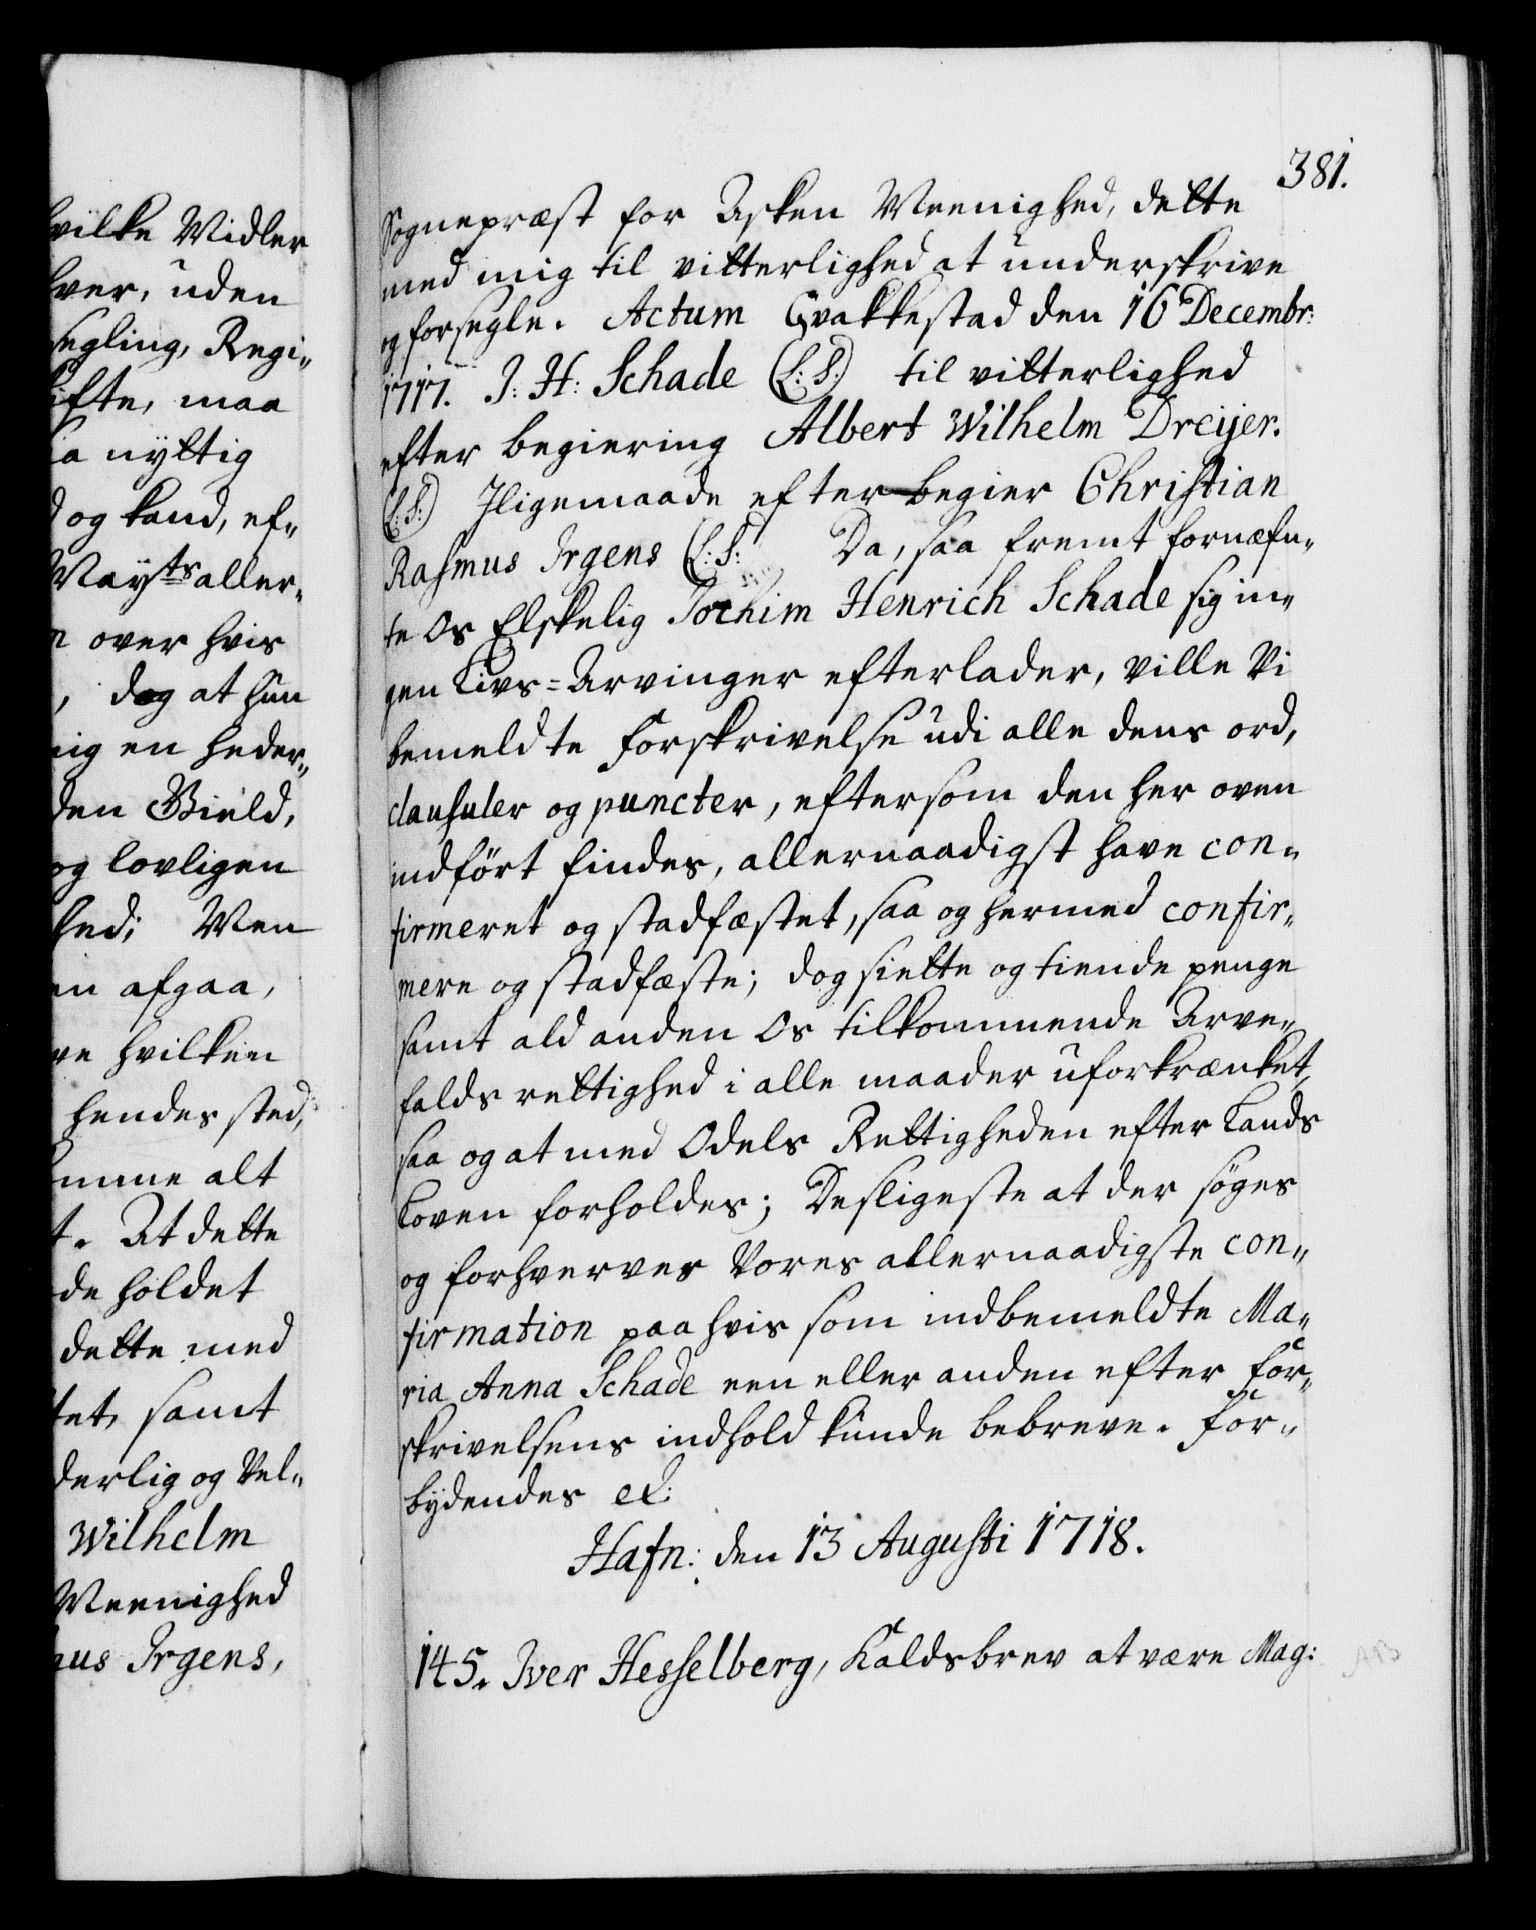 hvilke Midler
hver, uden
segling, Regi„
ifte, maa
nyttig
og kand, ef„
Mayts aller„
over hvis
, dog at hun
mig en heder„
den Gield,
og lovligen
hed; Men
afgaa,
hvilken
hendes sted,
alt
t. At dette
de holdet
dette med
tet, samt
derlig og Vel„
Wilhelm
Meenighed
mus Irgens,
381.
Sognepræst for Asken Meenighed, dette
med mig til vitterlighed at underskrive
og forsegle. Actum Gvakkestad den 16 Decembr:
1717. J: H: Schade (L: S:) til vitterlighed
efter begiering Albert Wilhelm Dreijer.
(L: S:) Jligemaade efter begier Christian
Rasmus Irgens (L: S: Da, saa fremt fornæfn„
te Os Elskelig Jochim Henrich Schade sig in„
gen Livs=Arvinger efterlader, ville Vi
bemeldte Forskrivelse udi alle dens ord,
clausuler og puncter, eftersom den her oven
indført findes, allernaadigst have con„
firmeret og stadfæstet, saa og hermed confir„
mere og stadfæste; dog siette og tiende penge
samt ald anden Os tilkommende Arve„
falds rettighed i alle maader uforkrænket,
saa og at med Odels Rettigheden efter Lands
Loven forholdes; Desligeste at der søges
og forhverves Vores allernaadigste con„
firmation paa hvis som indbemeldte Ma„
ria Anna Schade een eller anden efter for„
skrivelsens indhold kunde bebreve. For„
bydendes et:
Hafn: den 13 Augusti 1718.
145. Iver Hesselberg, Kaldsbrev at være Mag: